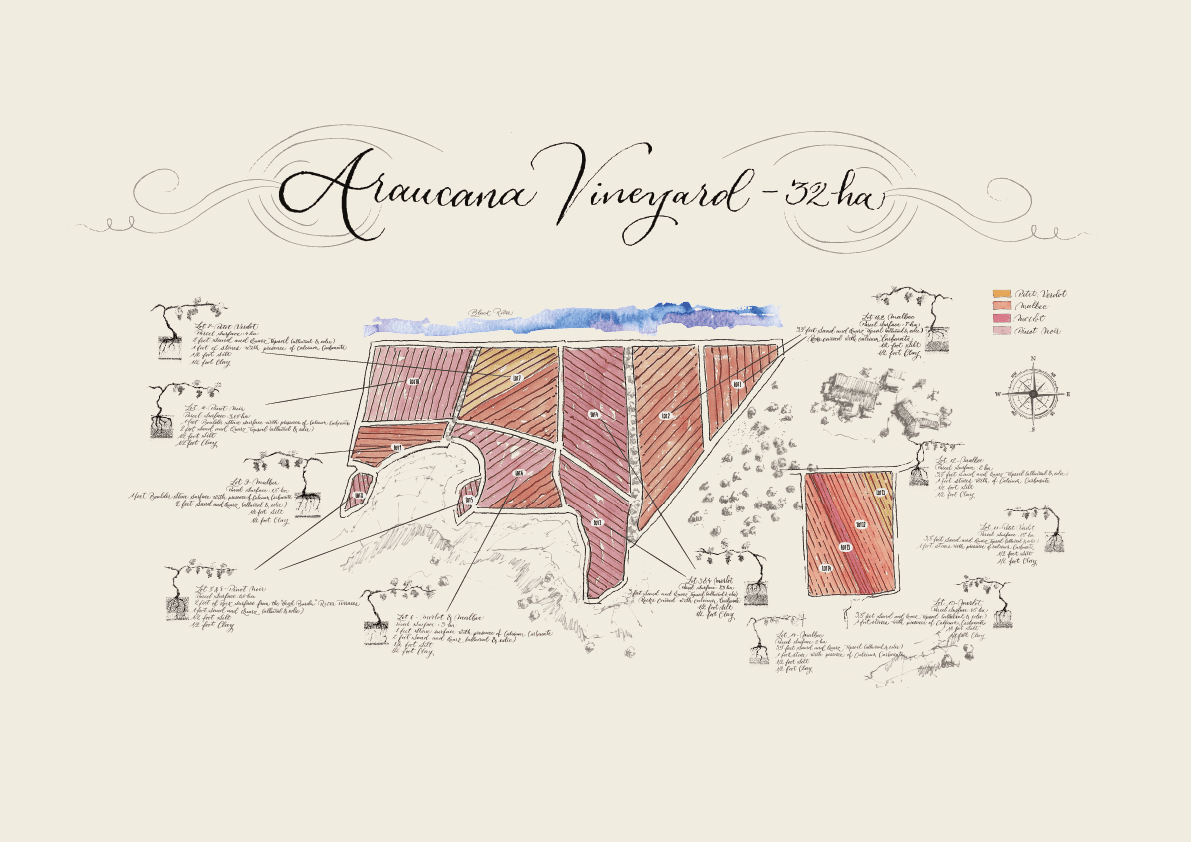 Araucana Vineyard - 32 ha
Black River
Petit Verdot
Malbec
Merlot
Pinot Noir
N
W
E
S
Lot 7 - Petit Verdot
Parcel surface: 4 ha
2 foot sand and Quarz, Topsoil (alluvial & eolic)
1 foot of stones with presence of Calcium Carbonate
1/2 foot Silt
1/2 foot Clay
Pinot Noir
Parcel surface:
1 foot Boulder stone surface with presence of Calcium Carbonate
2 foot sand and Quarz, Topsoil (alluvial & eolic)
1/2 foot Silt
1/2 foot Clay
Lot 9 - Malbec
Parcel surface: 1.5 ha
1 foot Boulder stone surface with presence of Calcium Carbonate
2 foot sand and Quarz, (alluvial & eolic)
1/2 foot Silt
1/2 foot Clay
Pinot Noir
Parcel surface:
2 foot of Rock surface from the "High Border" River Terraces
1 foot sand and Quarz, (alluvial & eolic)
1/2 foot Silt
1/2 foot Clay
Merlot & Malbec
Parcel surface: 3 ha
1 foot stone surface with presence of Calcium Carbonate
2 foot sand and Quarz, (alluvial & eolic)
1/2 foot Silt
1/2 foot Clay
Lot 3&4 Merlot
Parcel surface:
foot sand and Quarz, Topsoil (alluvial & eolic)
Rocks covered with Calcium Carbonate
1/2 foot Silt
1/2 foot Clay
Lot 1&2 Malbec
Parcel surface: 7 ha
3.5 foot sand and Quarz, Topsoil (alluvial & eolic)
Rocks covered with Calcium Carbonate
1/2 foot Silt
1/2 foot Clay
Malbec
Parcel surface: 2 ha
3.5 foot sand and Quarz, Topsoil (alluvial & eolic)
1 foot stones with presence of Calcium Carbonate
1/2 foot Silt
1/2 foot Clay
Lot 12 - Malbec
Parcel surface: 2 ha
3.5 foot sand and Quarz, Topsoil (alluvial & eolic)
1 foot stones, with of Calcium Carbonate
1/2 foot Silt
1/2 foot Clay
Petit Verdot
Parcel surface:
3.5 foot sand and Quarz, Topsoil (alluvial & eolic)
1 foot stones with presence of Calcium Carbonate
1/2 foot Silt
1/2 foot Clay
Merlot
Parcel surface:
3.5 foot sand and Quarz, Topsoil (alluvial & eolic)
1 foot stones, with presence of Calcium Carbonate
1/2 foot Silt
1/2 foot Clay
LOT 7
LOT 4
LOT 2
LOT 1
LOT 6
LOT 5
LOT 3
LOT 12
LOT 13
LOT 14